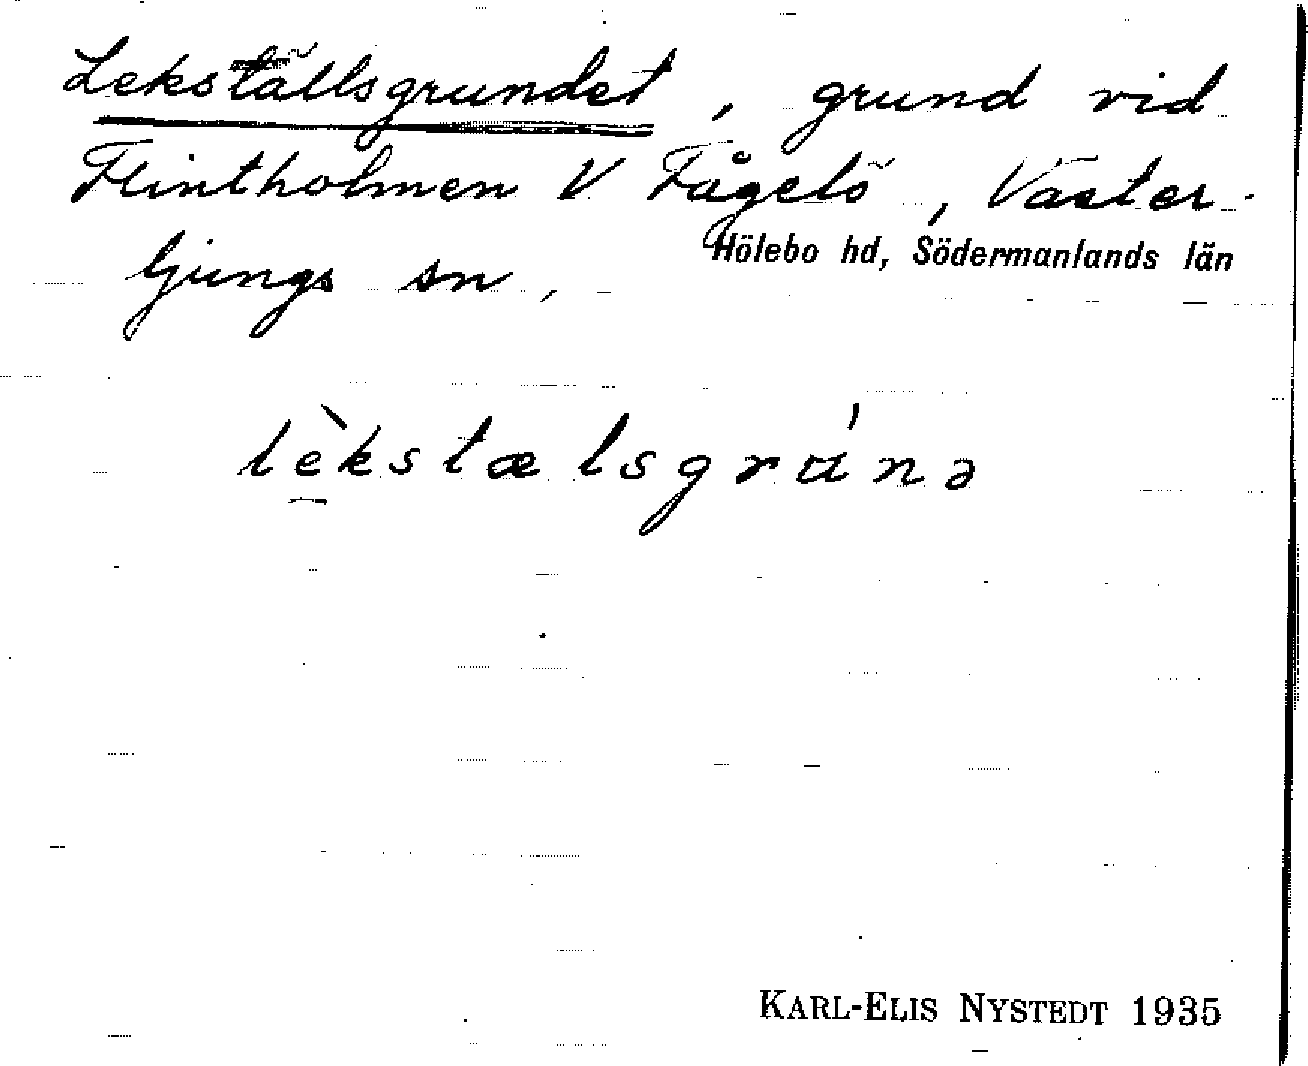 Lekställsgrundet, grund vid
Flintholmen V Fågelö, Väster-
ljungs sn,
Hölebo hd, Södermanlands län
lèkstælsgrúnə
KARL-ELIS NYSTEDT 1935